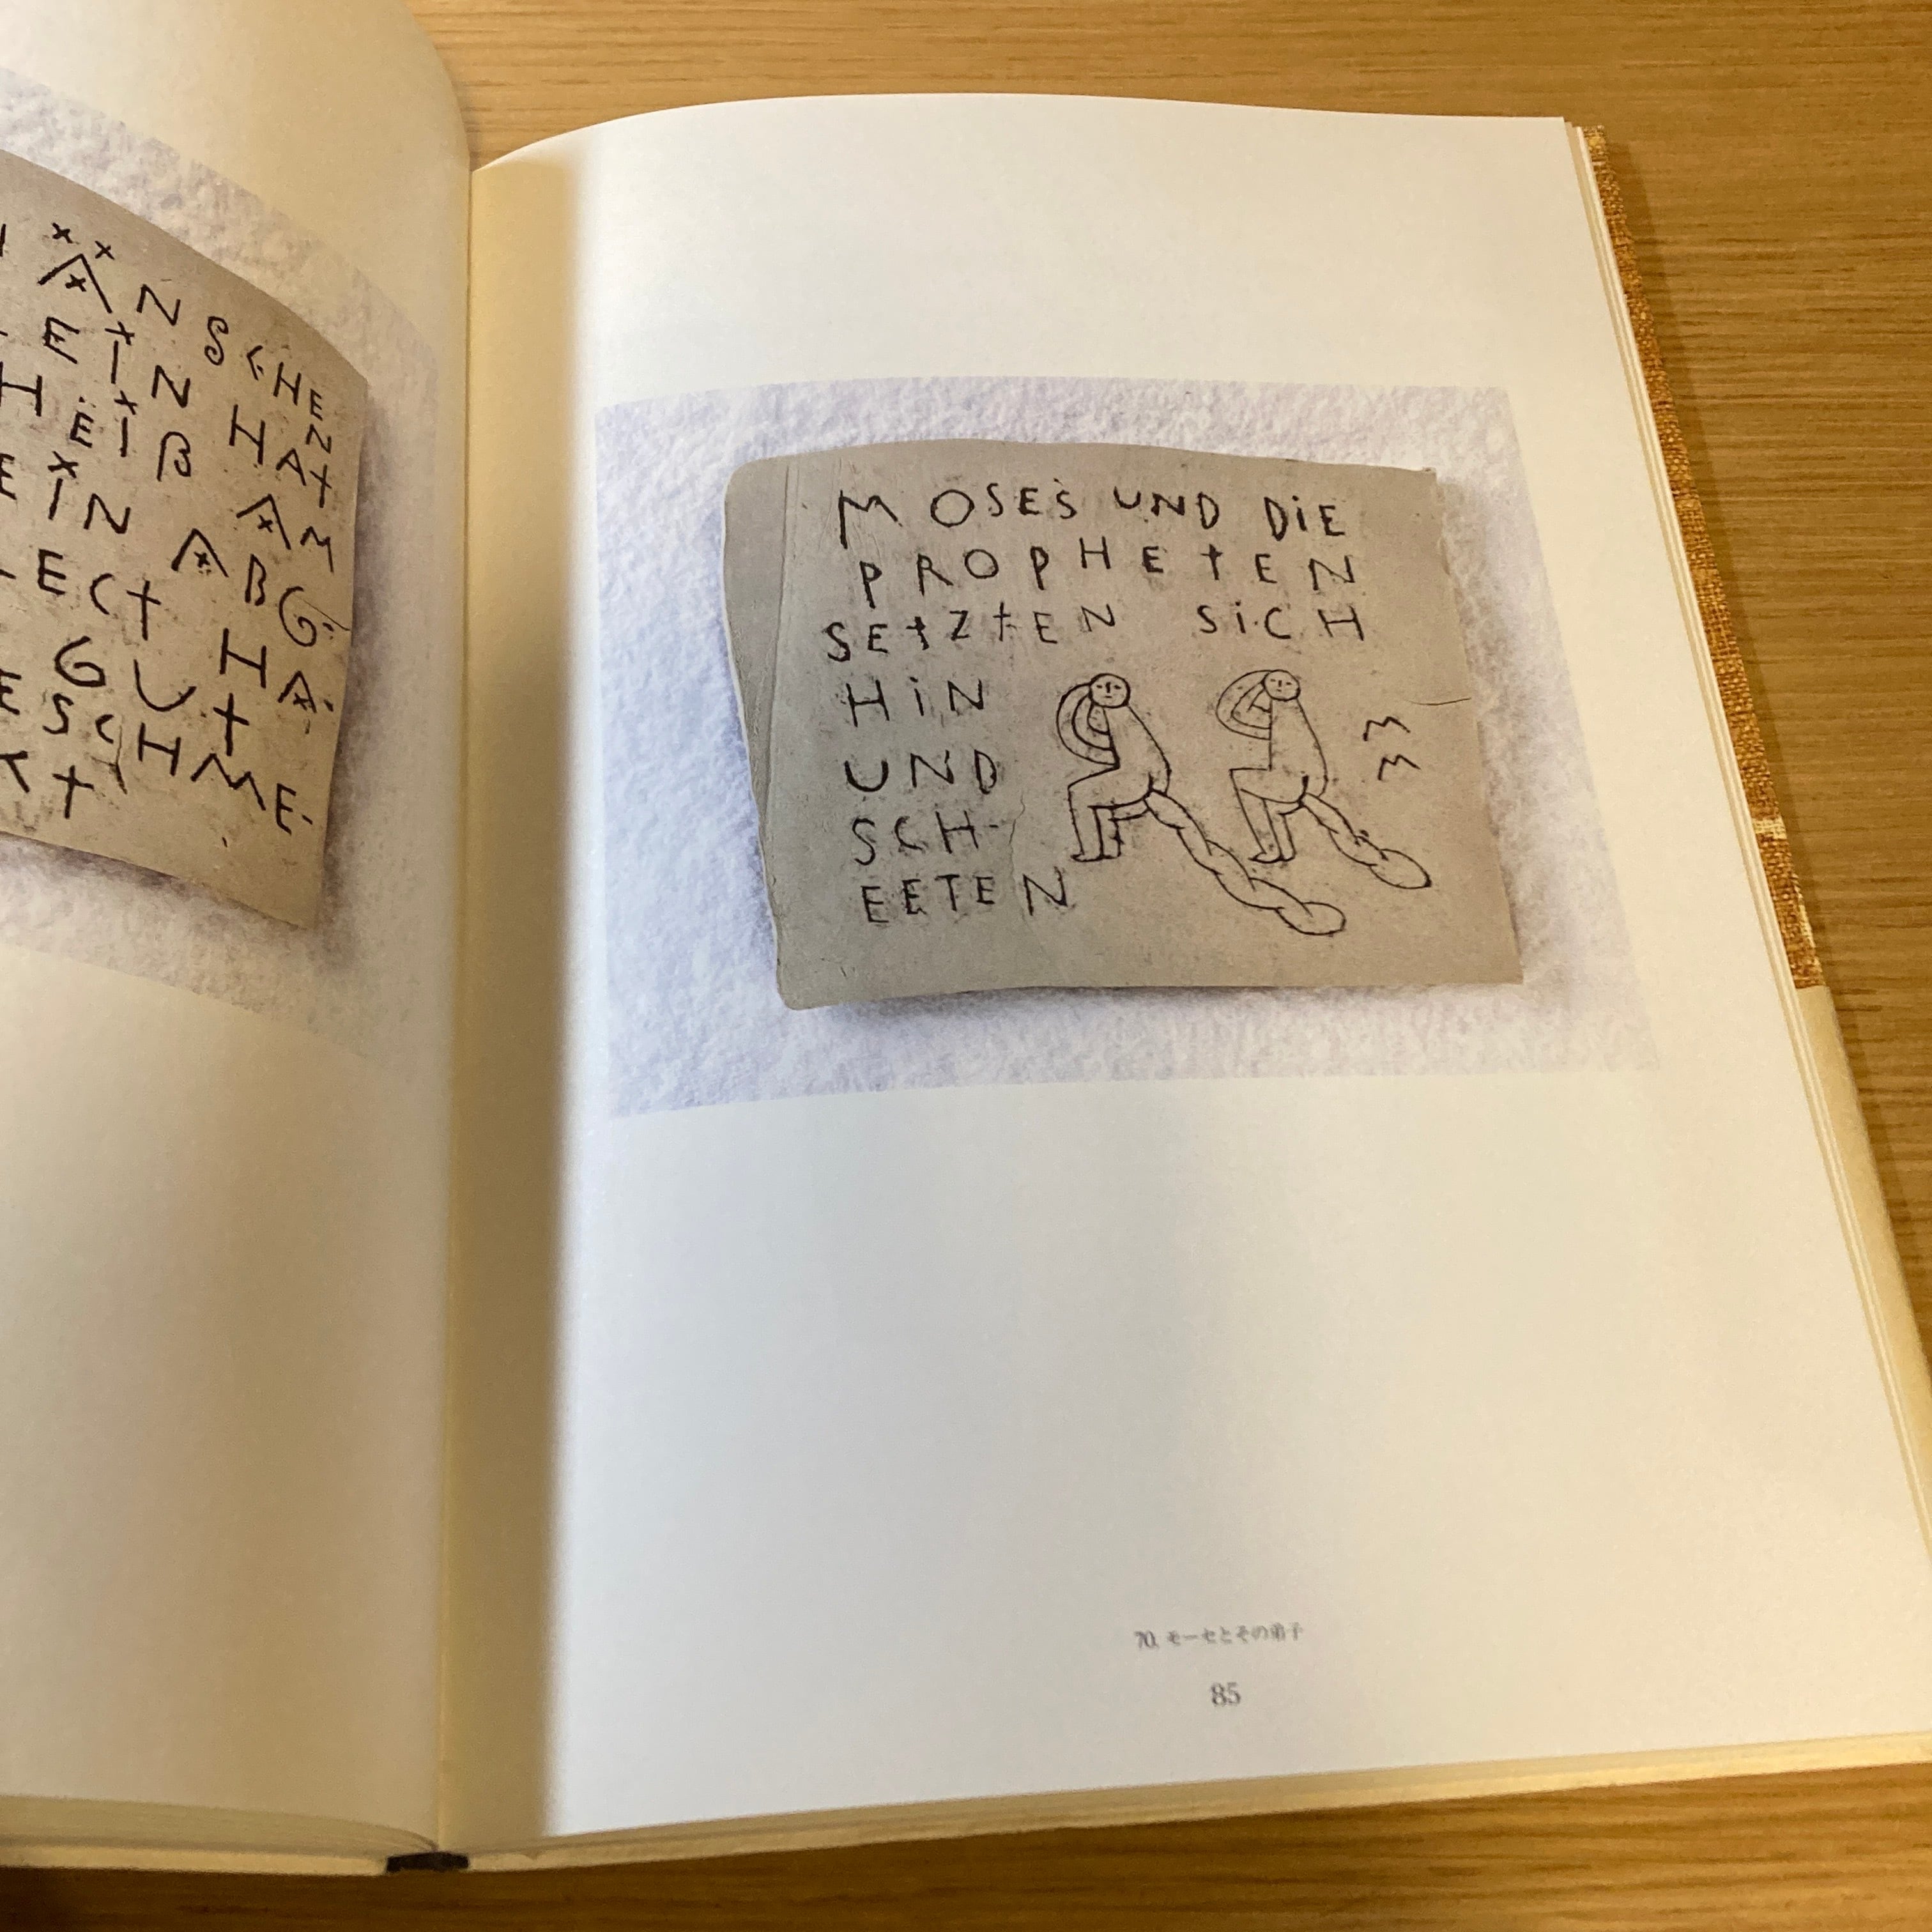 ÄNSCHEN
EIN HAT
HEIß AM
EIN ABG·
LECT HA·
GUT
ESCHME·
KT
MOSES UND DiE
PROPHETEN
SETZTEN SiCH
HiN
UND
SCH-
EETEN
70. モーセとその弟子
85